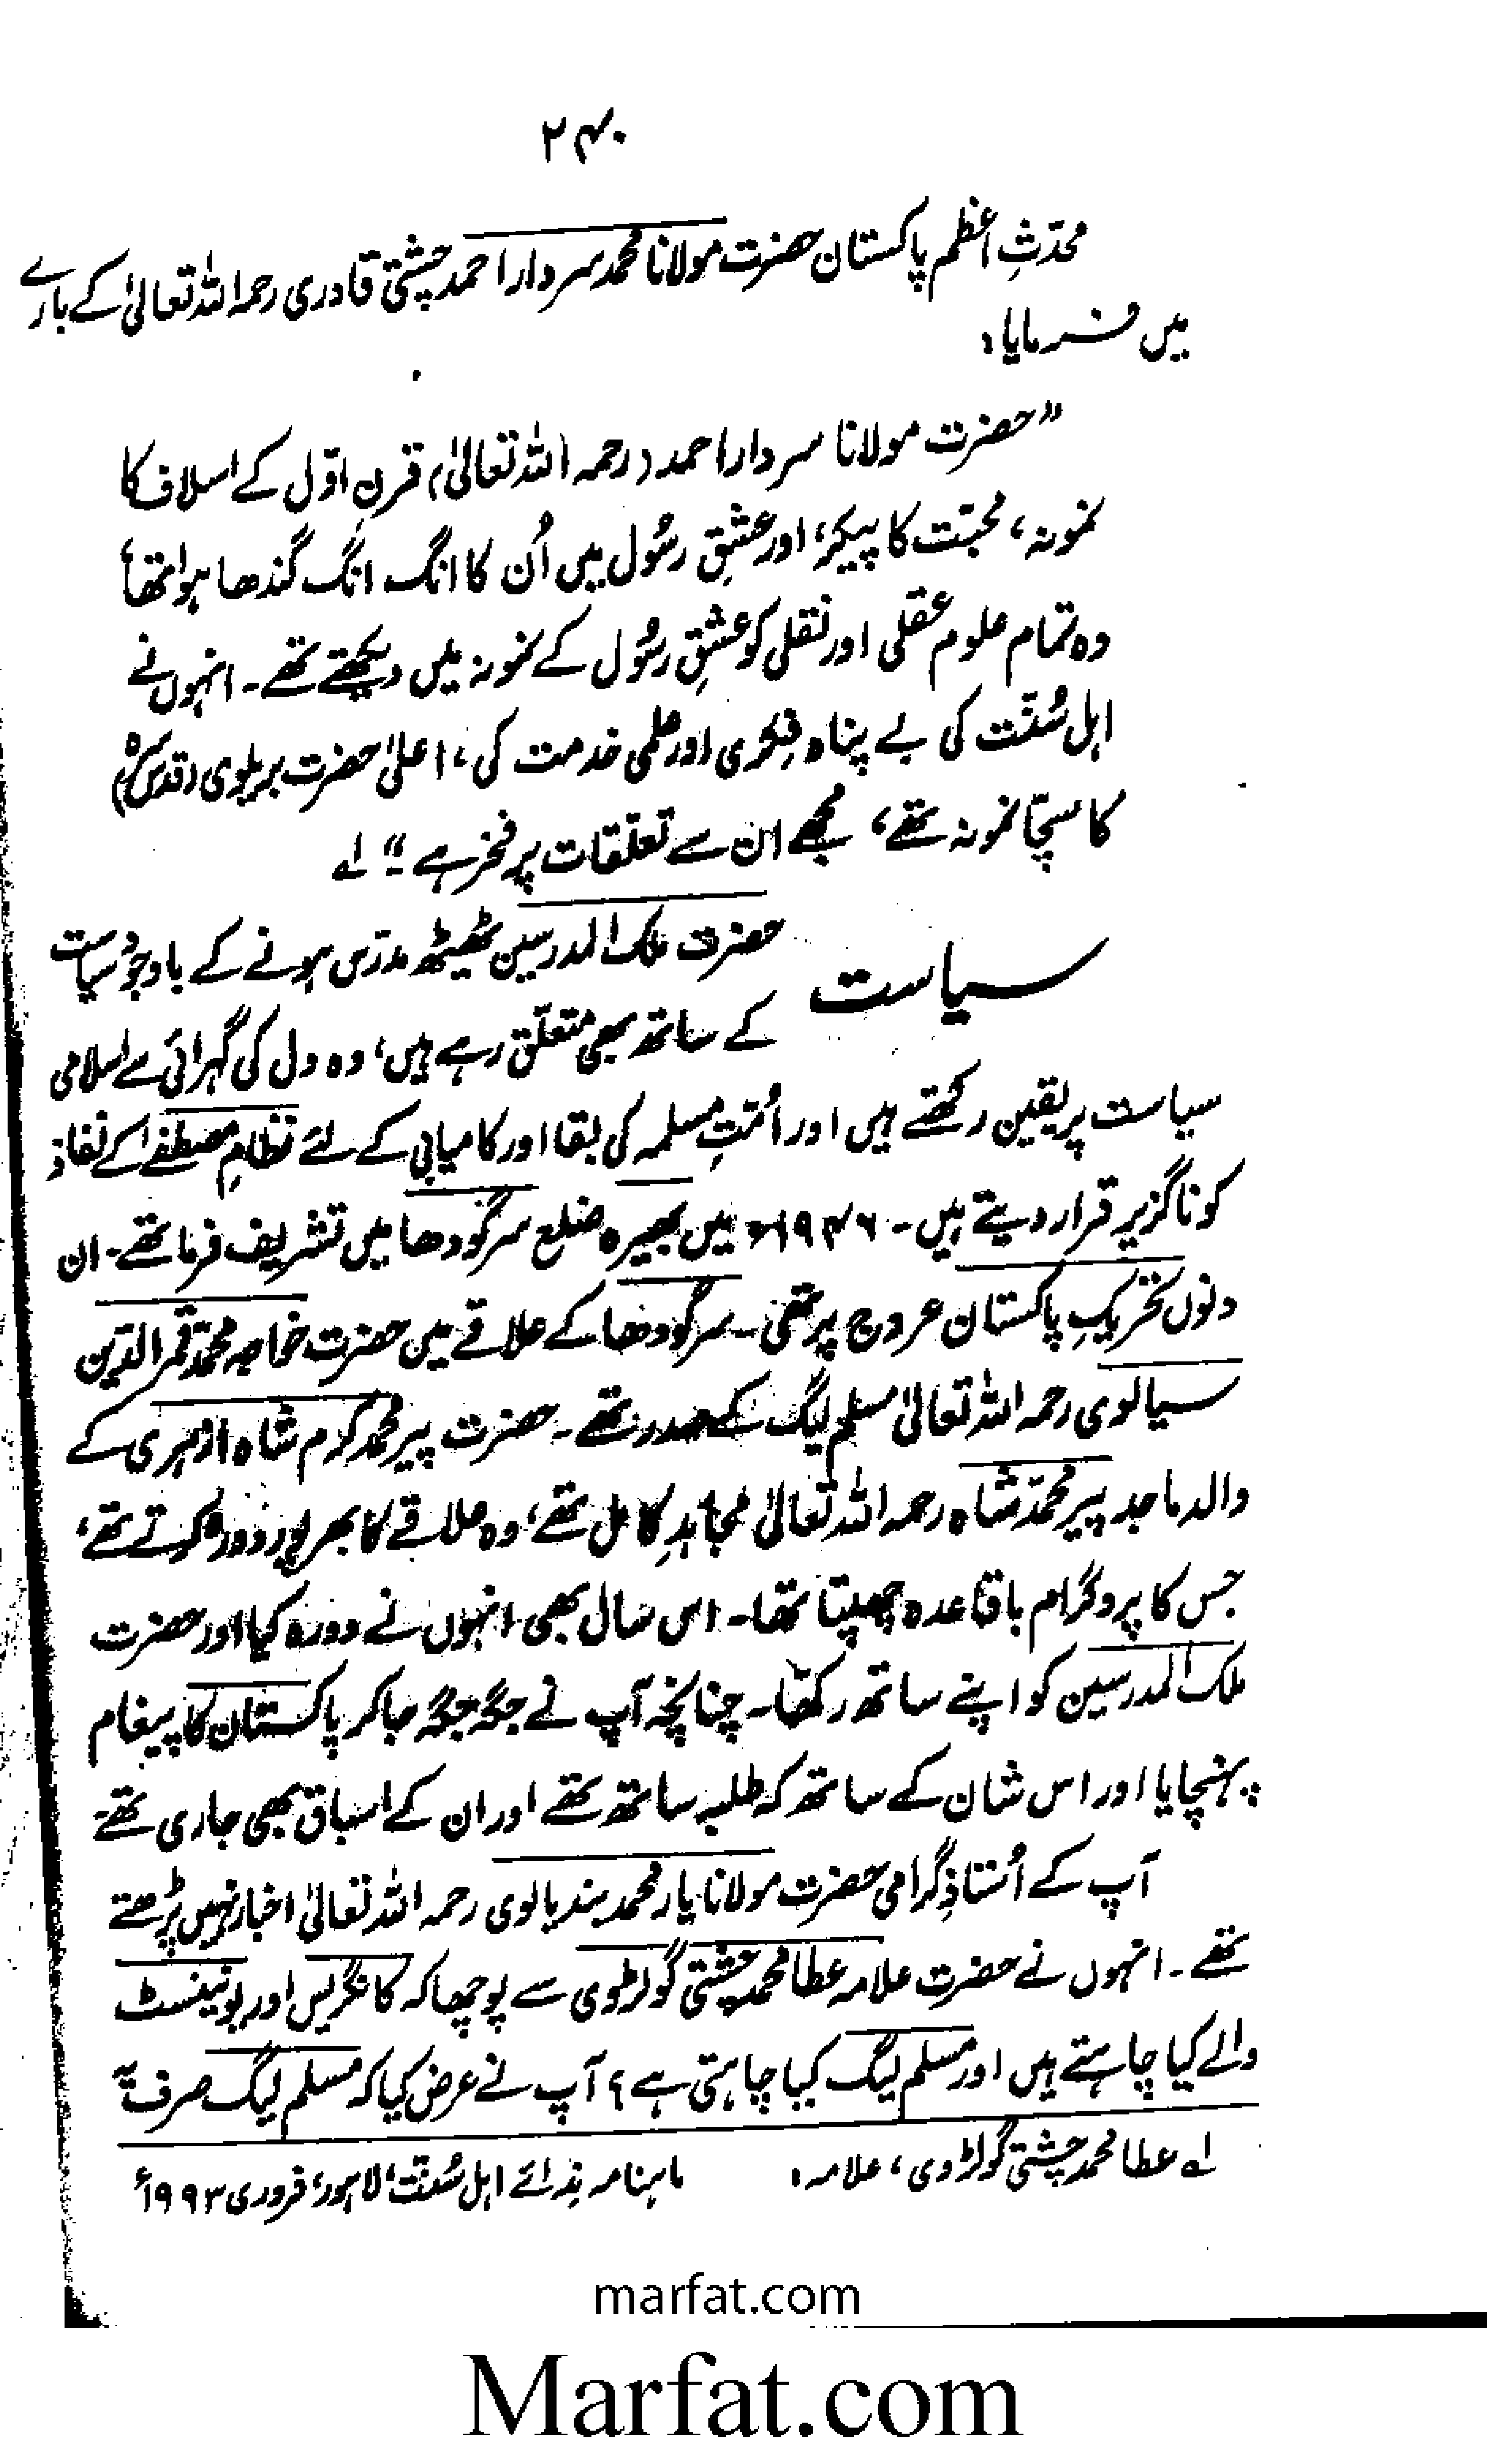 ۲۴۰
محدّثِ اعظم پاکستان حضرت مولانا محمد سردار احمد چشتی قادری رحمہ اللہ تعالیٰ کے بارے
میں فرمایا:
”حضرت مولانا سردار احمد (رحمہ اللہ تعالیٰ) قرنِ اوّل کے اسلاف کا
نمونہ، محبّت کا پیکر، اور عشقِ رسُول میں اُن کا انگ انگ گندھا ہوا تھا،
وہ تمام علوم عقلی اور نقلی کو عشقِ رسُول کے نمونہ میں دیکھتے تھے۔ انہوں نے
اہل سُنّت کی بے پناہ فِکری اور علمی خدمت کی، اعلیٰ حضرت بریلوی (قدس سرہٗ)
کا سچّا نمونہ تھے، مجھے ان سے تعلّقات پر فخر ہے“ ؂۱
سیاست
حضرت ملک المدرسین ٹھیٹھ مدرّس ہونے کے باوجود سیاست
کے ساتھ بھی متعلّق رہے ہیں، وہ دل کی گہرائی سے اسلامی
سیاست پر یقین رکھتے ہیں اور اُمّتِ مسلمہ کی بقا اور کامیابی کے لئے نظامِ مصطفےٰ کے نفاذ
کو ناگزیر قرار دیتے ہیں۔ ۱۹۴۶ء میں بھیرہ ضلع سرگودھا میں تشریف فرما تھے۔ ان
دنوں تحریکِ پاکستان عروج پر تھی۔ سرگودھا کے علاقے میں حضرت خواجہ محمد قمر الدّین
سیالوی رحمہ اللہ تعالیٰ مسلم لیگ کے صدر تھے۔ حضرت پیر محمد کرم شاہ ازہری کے
والد ماجد پیر محمّد شاہ رحمہ اللہ تعالیٰ مجاہدِ کامل تھے، وہ علاقے کا بھرپور دورہ کرتے تھے،
جس کا پروگرام باقاعدہ چھپتا تھا۔ اس سال بھی انہوں نے دورہ کیا اور حضرت
ملک المدرسین کو اپنے ساتھ رکھا۔ چنانچہ آپ نے جگہ جگہ جا کر پاکستان کا پیغام
پہنچایا اور اس شان کے ساتھ کہ طلبہ ساتھ تھے اور ان کے اسباق بھی جاری تھے
آپ کے اُستاذِ گرامی حضرت مولانا یار محمد بندیالوی رحمہ اللہ تعالیٰ اخبار نہیں پڑھتے
تھے۔ انہوں نے حضرت علامہ عطا محمد چشتی گولڑوی سے پوچھا کہ کانگریس اور یونینسٹ
والے کیا چاہتے ہیں اور مسلم لیگ کیا چاہتی ہے؟ آپ نے عرض کیا کہ مسلم لیگ صرف یہ
؂۱ عطا محمد چشتی گولڑوی، علامہ: ماہنامہ ندائے اہل سُنّت، لاہور، فروری ۱۹۹۳ء
marfat.com
Marfat.com